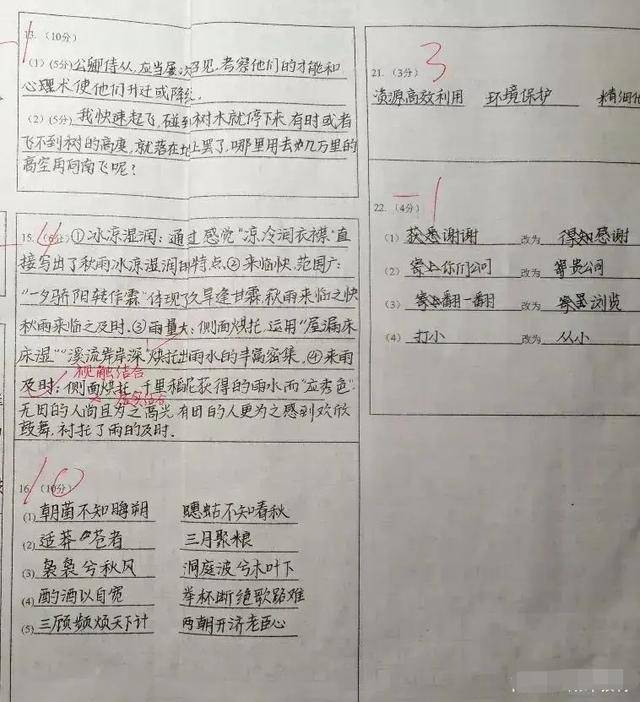 13.(10分)
(1)(5分)公卿侍从,应当屡次召见,考察他们的才能和
心理术使他们升迁或降级.
(2)(5分)我快速起飞,碰到树木就停下来,有时或者
飞不到树的高度,就落在地上罢了,哪里用去九万里的
高空再向南飞呢?
15.(6分)①冰凉湿润:通过感觉"凉冷润衣襟"直
接写出了秋雨冰凉湿润的特点.②来临快,范围广:
"一夕骄阳转作霖"体现了久旱逢甘霖,秋雨来临之快
秋雨来临之及时.③雨量大:侧面烘托,运用"屋漏床
床湿""溪流岸岸深"烘托出雨水的丰富密集.④来雨
视触结合
及时:侧面烘托,千里稻花获得的雨水而"应秀色"
无田的人尚且为之高兴,有田的人更为之感到欢欣
鼓舞,衬托了雨的及时.
16.(10分)
(1)朝菌不知晦朔 蟪蛄不知春秋
(2)适莽苍者 三月聚粮
(3)袅袅兮秋风 洞庭波兮木叶下
(4)酌酒以自宽 举杯断绝歌路难
(5)三顾频烦天下计 两朝开济老臣心
21.(3分) 3
资源高效利用 环境保护 精细化
22.(4分) -1
(1)获悉谢谢 改为 得知感谢
(2)寄上你们公司 改为 寄贵公司
(3)翻一翻 改为 浏览
(4)打小 改为 从小